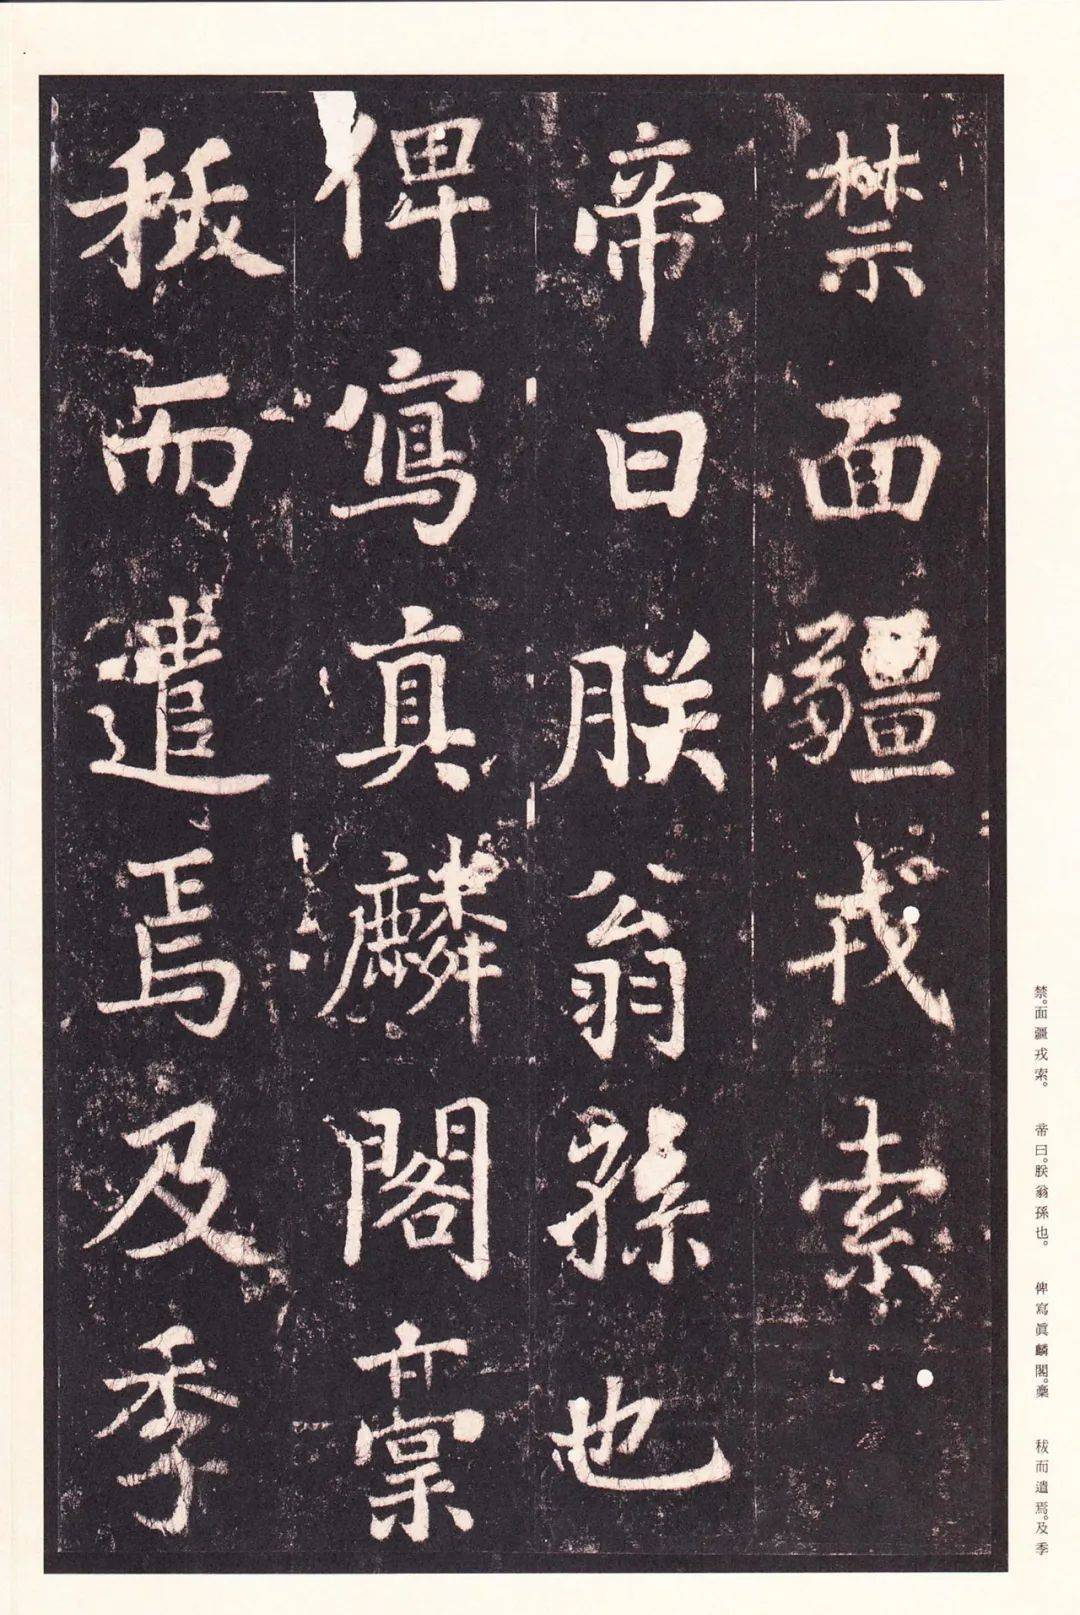 禁面疆戎索
帝曰朕翁孫也
俾寫真麟閣稾
秡而遣焉及季
禁。面疆戎索。 帝曰。朕翁孫也。 俾寫眞麟閣。稾 秡而遣焉。及季